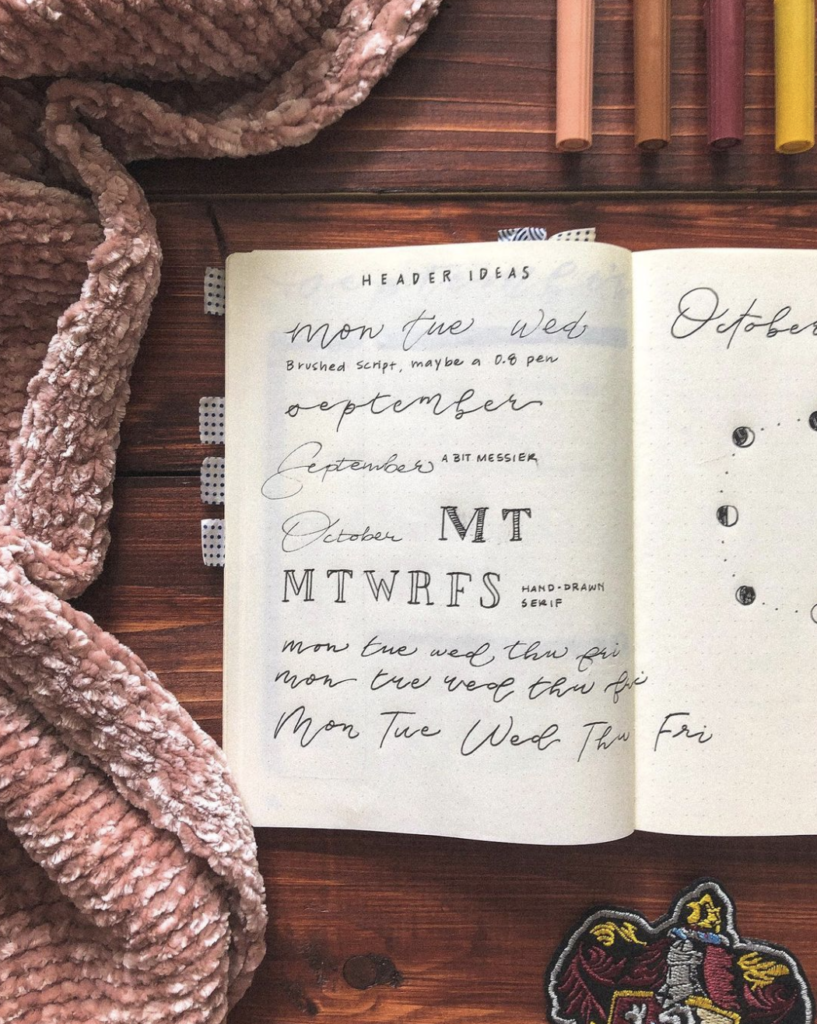 HEADER IDEAS
mon tue wed
Brushed script, maybe a 0.8 pen
september
September A BIT MESSIER
October MT
MTWRFS HAND-DRAWN
SERIF
mon tue wed thu fri
mon tue wed thu fri
Mon Tue Wed Thu Fri
October